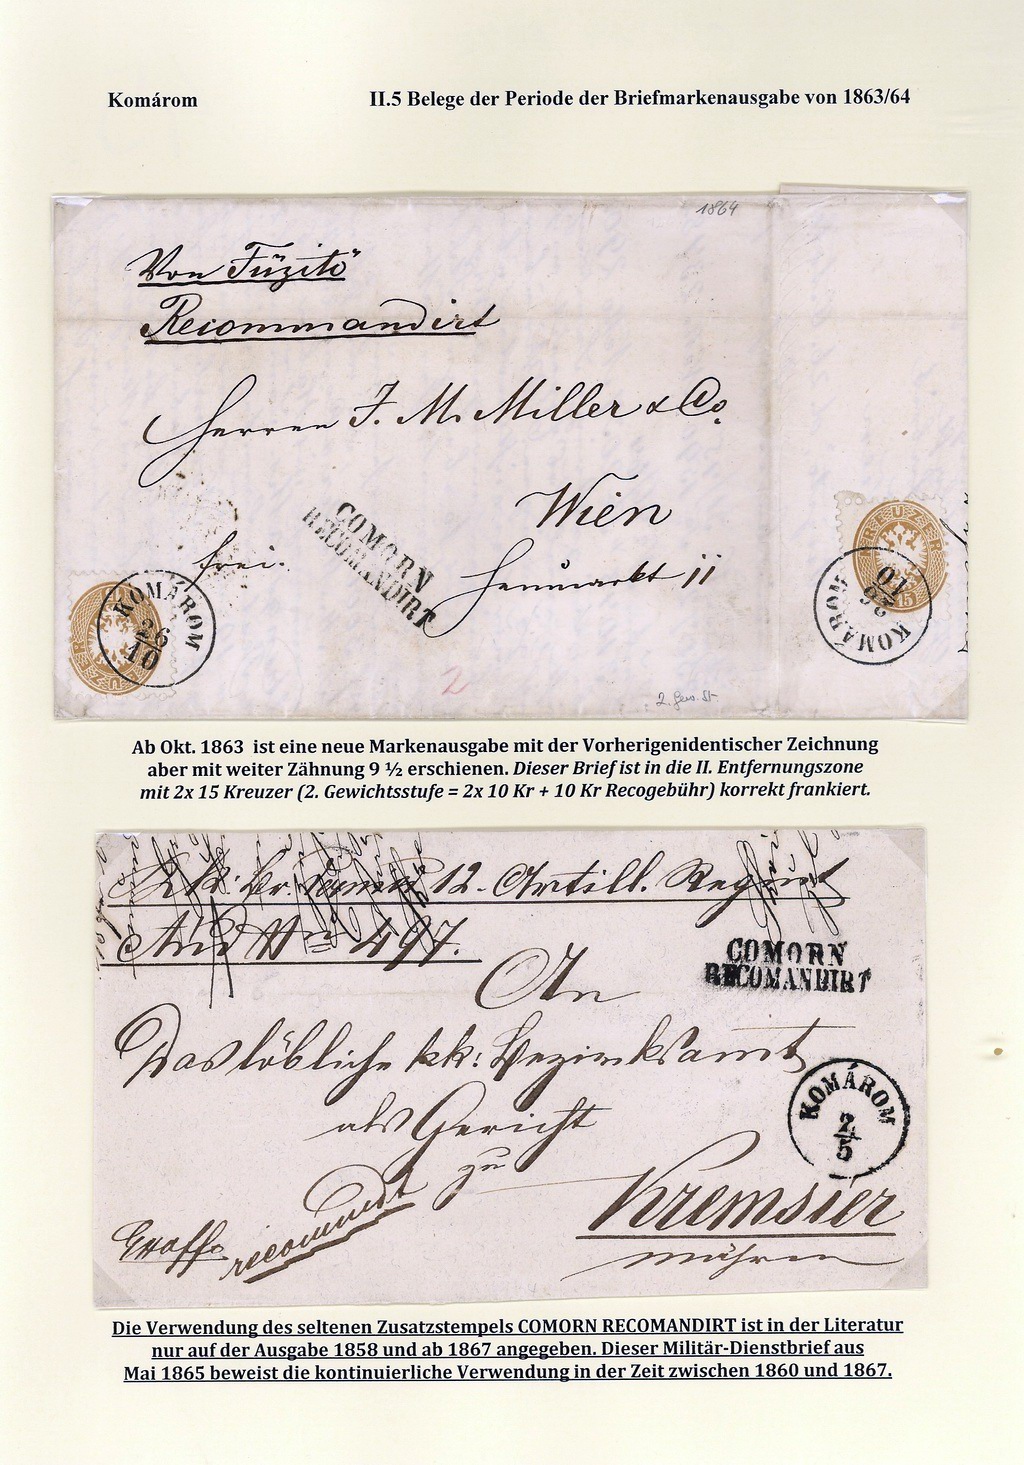 Komárom
II.5 Belege der Periode der Briefmarkenausgabe von 1863/64
1864
Von Füzitö
Recommandirt
Herren J. M. Miller & Co.
Wien
frei.
COMORN
RECOMANDIRT
Heumarkt 11
KOMÁROM
26
10
KREUZER
15
KOMÁROM
26
10
2
2. Gew. St.
Ab Okt. 1863 ist eine neue Markenausgabe mit der Vorherigenidentischer Zeichnung
aber mit weiter Zähnung 9 ½ erschienen. Dieser Brief ist in die II. Entfernungszone
mit 2x 15 Kreuzer (2. Gewichtsstufe = 2x 10 Kr + 10 Kr Recogebühr) korrekt frankiert.
12. Artill. Regimt
497.
COMORN
RECOMANDIRT
An
Das löbliche kk: Bezirksamt
als Gericht
zu
KOMÁROM
2
5
Kremsier
Mähren
recommdt
Die Verwendung des seltenen Zusatzstempels COMORN RECOMANDIRT ist in der Literatur
nur auf der Ausgabe 1858 und ab 1867 angegeben. Dieser Militär-Dienstbrief aus
Mai 1865 beweist die kontinuierliche Verwendung in der Zeit zwischen 1860 und 1867.